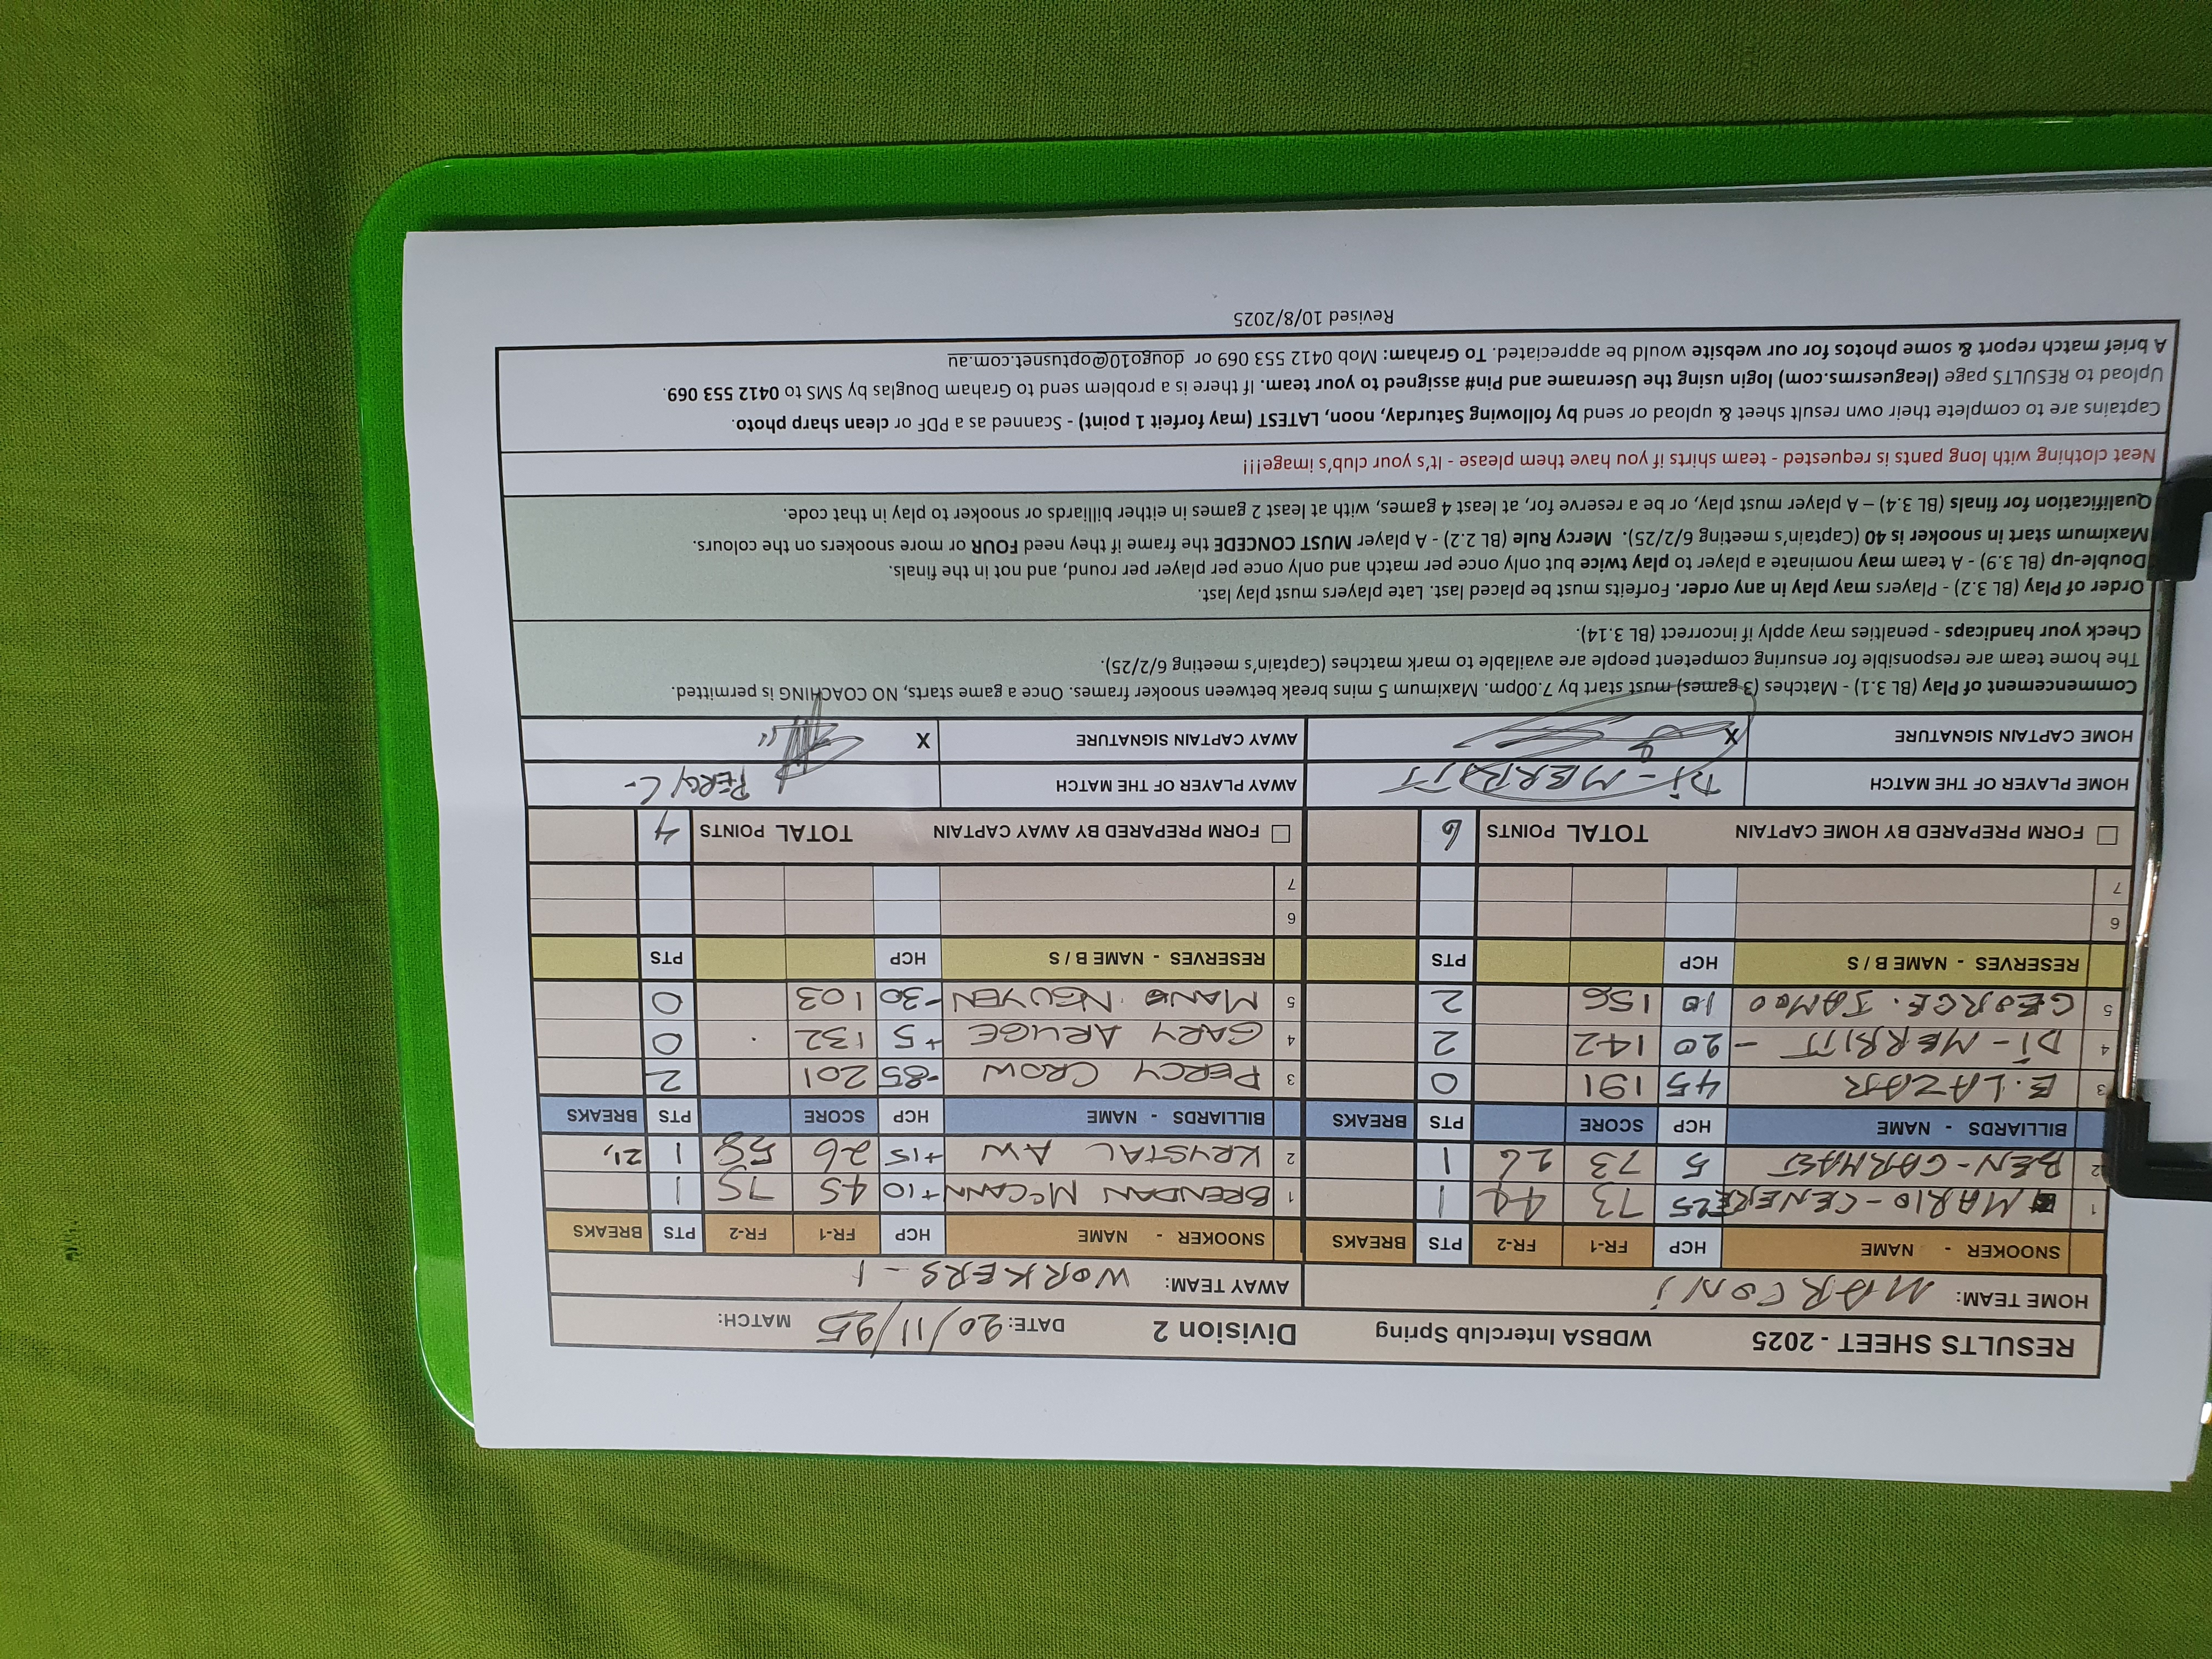 RESULTS SHEET - 2025 WDBSA Interclub Spring Division 2 DATE: 20/11/25 MATCH:
HOME TEAM: MARCONI AWAY TEAM: WORKERS - 1
SNOOKER - NAME HCP FR-1 FR-2 PTS BREAKS SNOOKER - NAME HCP FR-1 FR-2 PTS BREAKS
1 MARIO - 25 73 44 1 1 BRENDAN McCANN +10 45 75 1
2 BEN - 5 73 26 1 2 KRYSTAL AW +15 26 58 1 21,
BILLIARDS - NAME HCP SCORE PTS BREAKS BILLIARDS - NAME HCP SCORE PTS BREAKS
3 E. LAZAR 45 191 0 3 PERCY CROW -85 201 2
4 Di - MERRITT - 20 142 2 4 GARY ARUGE +5 132 0
5 GEORGE. SAMOO 10 156 2 5 MANO NGUYEN -30 103 0
RESERVES - NAME B / S HCP PTS RESERVES - NAME B / S HCP PTS
6 6
7 7
☐ FORM PREPARED BY HOME CAPTAIN TOTAL POINTS 6 ☐ FORM PREPARED BY AWAY CAPTAIN TOTAL POINTS 4
HOME PLAYER OF THE MATCH Di - MERRITT AWAY PLAYER OF THE MATCH PERCY C-
HOME CAPTAIN SIGNATURE X AWAY CAPTAIN SIGNATURE X
Commencement of Play (BL 3.1) - Matches (3 games) must start by 7.00pm. Maximum 5 mins break between snooker frames. Once a game starts, NO COACHING is permitted.
The home team are responsible for ensuring competent people are available to mark matches (Captain's meeting 6/2/25).
Check your handicaps - penalties may apply if incorrect (BL 3.14).
Order of Play (BL 3.2) - Players may play in any order. Forfeits must be placed last. Late players must play last.
Double-up (BL 3.9) - A team may nominate a player to play twice but only once per match and only once per player per round, and not in the finals.
Maximum start in snooker is 40 (Captain's meeting 6/2/25). Mercy Rule (BL 2.2) - A player MUST CONCEDE the frame if they need FOUR or more snookers on the colours.
Qualification for finals (BL 3.4) – A player must play, or be a reserve for, at least 4 games, with at least 2 games in either billiards or snooker to play in that code.
Neat clothing with long pants is requested - team shirts if you have them please - It's your club's image!!!
Captains are to complete their own result sheet & upload or send by following Saturday, noon, LATEST (may forfeit 1 point) - Scanned as a PDF or clean sharp photo.
Upload to RESULTS page (leaguesrms.com) login using the Username and Pin# assigned to your team. If there is a problem send to Graham Douglas by SMS to 0412 553 069.
A brief match report & some photos for our website would be appreciated. To Graham: Mob 0412 553 069 or dougo10@optusnet.com.au
Revised 10/8/2025